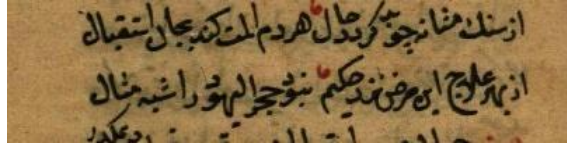 از سنك مثانه چو بد كردد حال هر دم المت كند بجان استقبال
از بهر علاج این مرض نزد حكیم نبود حجر الیهود را شبه مثال